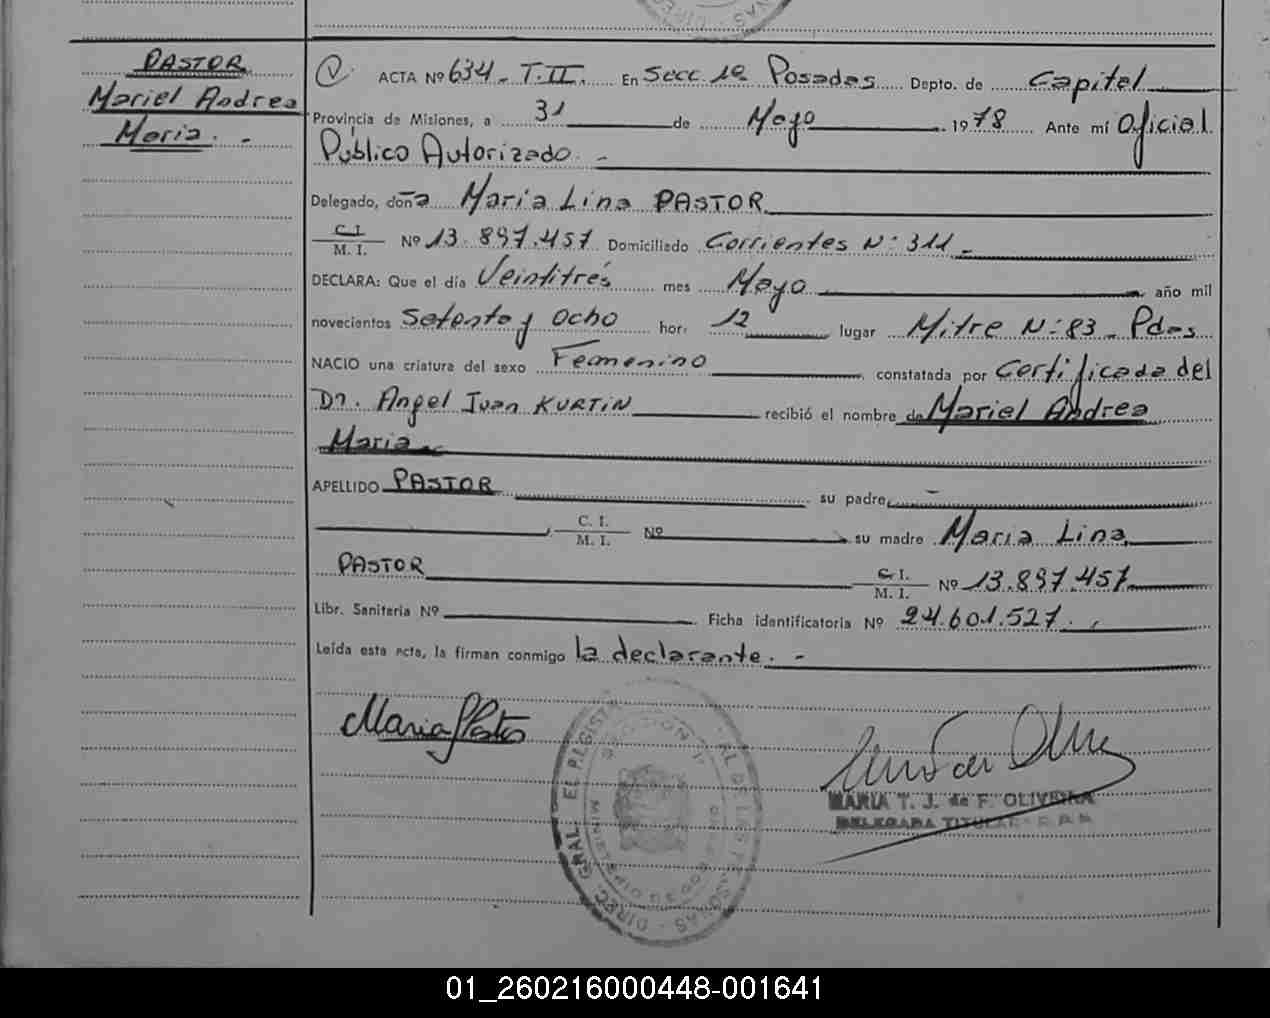 PASTOR
Mariel Andrea
Maria. -
ACTA Nº 634 - T. II. En Secc. 1a Posadas Depto. de Capital
Provincia de Misiones, a 31 de Mayo 1978 Ante mí Oficial
Público Autorizado. -
Delegado, doña Maria Lina PASTOR
C. I.
M. I. Nº 13.897.457 Domiciliado Corrientes Nº 311 -
DECLARA: Que el día Veintitrés mes Mayo año mil
novecientos Setenta y Ocho hor. 12 lugar Mitre Nº 83 - Pdas
NACIO una criatura del sexo Femenino constatada por Certificado del
Dr. Angel Ivan KURTIN recibió el nombre de Mariel Andrea
Maria
APELLIDO PASTOR su padre, -
C. I.
M. I. Nº su madre Maria Lina
PASTOR C. I.
M. I. Nº 13.897.457
Libr. Sanitaria Nº Ficha identificatoria Nº 24.601.527.
Leída esta acta, la firman conmigo la declarante. -
MARIA T. J. de F. OLIVEIRA
DELEGADA TITULAR
01_260216000448-001641